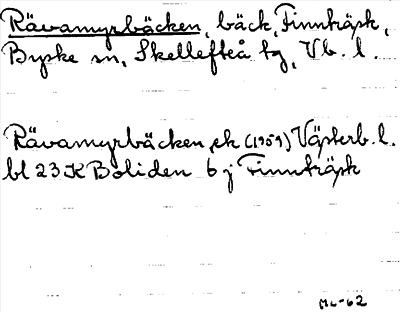 Rävamyrbäcken, bäck, Finnträsk,
Byske sn, Skellefteå tg, Vb. l.
Rävamyrbäcken, ek (1959) Västerb. l.
bl 23 K Boliden 6 j Finnträsk
ML-62